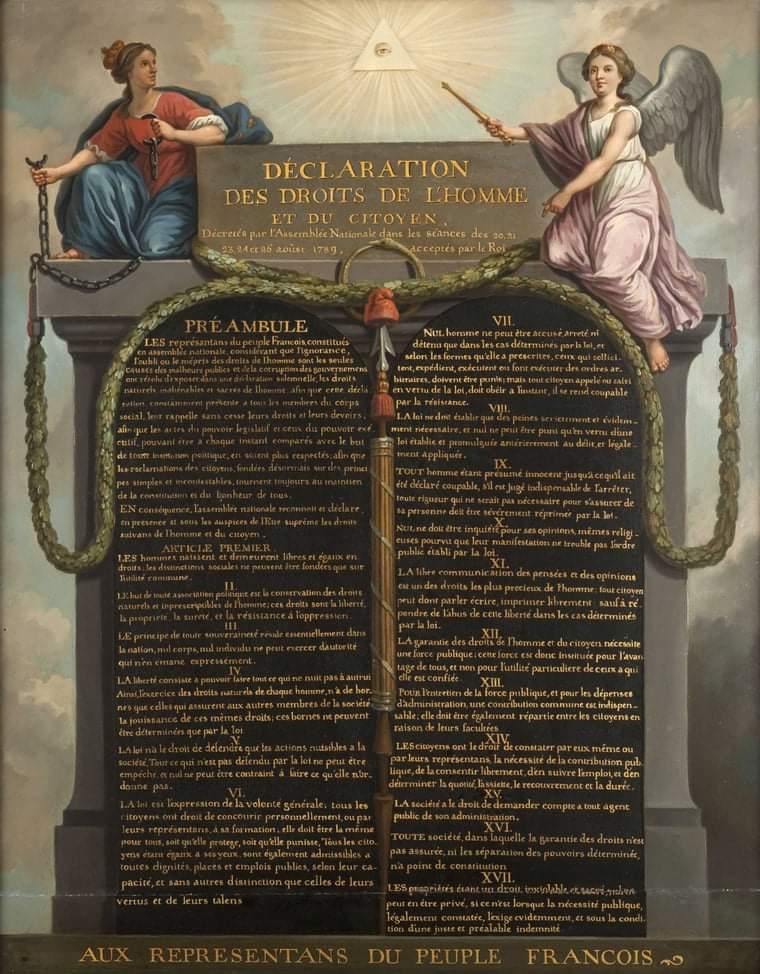 DÉCLARATION
DES DROITS DE L'HOMME
ET DU CITOYEN,
Décretés par l'Assemblée Nationale dans les séances des 20, 21
23, 24 et 26 aoûst 1789, acceptés par le Roi
PRÉAMBULE
LES représentans du peuple Francois, constitués
en assemblée nationale, considérant que l'ignorance,
l'oubli ou le mépris des droits de l'homme sont les seules
causes des malheurs publics et de la corruption des gouvernemens
ont résolu d'exposer dans une déclaration solemnelle, les droits
naturels, inaliénables et sacrés de l'homme: afin que cette décla
ration, constamment présente a tous les membres du corps
social, leur rappelle sans cesse leurs droits et leurs devoirs;
afin que les actes du pouvoir législatif et ceux du pouvoir exé
cutif, pouvant être a chaque instant comparés avec le but
de toute institution politique, en soient plus respectés; afin que
les reclamations des citoyens, fondées désormais sur des princi
pes simples et incontestables, tournent toujours au maintien
de la constitution et du bonheur de tous.
EN conséquence, l'assemblée nationale reconnoit et déclare,
en presence et sous les auspices de l'Etre suprême les droits
suivans de l'homme et du citoyen.
ARTICLE PREMIER.
LES hommes naissent et demeurent libres et égaux en
droits; les distinctions sociales ne peuvent être fondées que sur
l'utilité commune.
II.
LE but de toute association politique est la conservation des droits
naturels et inprescriptibles de l'homme; ces droits sont la liberté,
la propriété, la sureté, et la résistance à l'oppression.
III
LE principe de toute souveraineté réside essentiellement dans
la nation, nul corps, nul individu ne peut exercer d'autorité
qui n'en émane expressement.
IV
LA liberté consiste a pouvoir faire tout ce qui ne nuit pas à autrui
Ainsi, l'exercice des droits naturels de chaque homme, n'a de bor
nes que celles qui assurent aux autres membres de la société
la jouissance de ces mêmes droits; ces bornes ne peuvent
être déterminées que par la loi
V.
LA loi n'a le droit de défendre que les actions nuisibles a la
société, Tout ce qui n'est pas défendu par la loi ne peut être
empêché, et nul ne peut être contraint à faire ce qu'elle n'or-
donne pas.
VI.
LA loi est l'expression de la volonté générale; tous les
citoyens ont droit de concourir personnellement, ou par
leurs représentans, à sa formation; elle doit être la même
pour tous, soit qu'elle protege, soit qu'elle punisse, Tous les cito
yens étant égaux à ses yeux, sont également admissibles a
toutes dignités, places et emplois publics, selon leur ca-
pacité, et sans autres distinction que celles de leurs
vertus et de leurs talens
VII.
NUL homme ne peut être accusé, arreté, ni
détenu que dans les cas déterminés par la loi, et
selon les formes qu'elle a prescrites, ceux qui sollici-
tent, expédient, exécutent ou font exécuter des ordres ar-
bitraires, doivent être punis; mais tout citoyen appelé ou saisi
en vertu de la loi, doit obéir a l'instant, il se rend coupable
par la résistance.
VIII.
LA loi ne doit établir que des peines strictement et évidem-
ment nécessaire, et nul ne peut être puni qu'en vertu d'une
loi établie et promulguée antérieurement au délit, et légale-
ment appliquée.
IX.
TOUT homme étant présumé innocent jusqu'a ce qu'il ait
été déclaré coupable, s'il est jugé indispensable de l'arrêter,
toute rigueur qui ne serait pas nécessaire pour s'assurer de
sa personne doit être sévèrement réprimée par la loi.
X.
NUL ne doit être inquiété pour ses opinions, mêmes religi-
euses pourvu que leur manifestation ne trouble pas l'ordre
public établi par la loi.
XI.
LA libre communication des pensées et des opinions
est un des droits les plus precieux de l'homme: tout citoyen
peut donc parler écrire, imprimer librement sauf à ré
pondre de l'abus de cette liberté dans les cas déterminés
par la loi.
XII.
LA garantie des droits de l'homme et du citoyen nécessite
une force publique; cette force est donc instituée pour l'avan
tage de tous, et non pour l'utilité particuliere de ceux a qui
elle est confiée.
XIII.
POUR l'entretien de la force publique, et pour les dépenses
d'administration, une contribution commune est indispen-
sable; elle doit être également répartie entre les citoyens en
raison de leurs facultées
XIV.
LES citoyens ont le droit de constater par eux même ou
par leurs représentans, la nécessité de la contribution pub-
lique, de la consentir librement, d'en suivre l'emploi, et d'en
déterminer la quotité, l'assiete, le recouvrement et la durée.
XV.
LA société a le droit de demander compte a tout agent
public de son administration.
XVI.
TOUTE société, dans laquelle la garantie des droits n'est
pas assurée, ni les séparation des pouvoirs déterminée,
n'a point de constitution
XVII.
LES propriétés étant un droit inviolable et sacré, nul ne
peut en être privé, si ce n'est lorsque la nécessité publique,
légalement constatée, l'exige evidemment, et sous la condi-
tion d'une juste et préalable indemnité.
AUX REPRESENTANS DU PEUPLE FRANCOIS